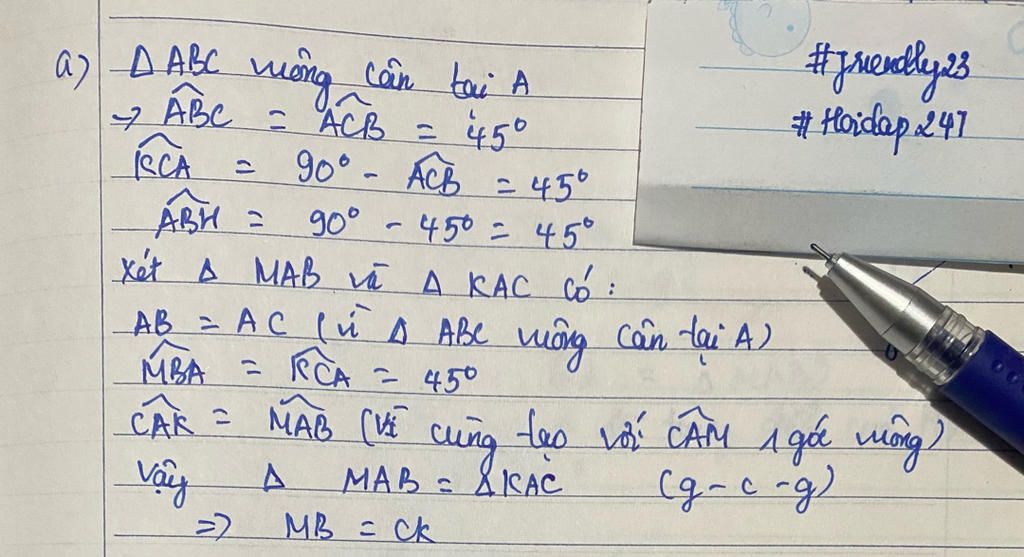 a) Δ ABC vuông cân tại A
→ ABC = ACB = 45°
KCA = 90° - ACB = 45°
ABH = 90° - 45° = 45°
Xét Δ MAB và Δ KAC có:
AB = AC (vì Δ ABC vuông cân tại A)
MBA = KCA = 45°
CAK = MAB (vì cùng tạo với CAM 1 góc vuông)
Vậy Δ MAB = Δ KAC (g-c-g)
=> MB = CK
#friendly23
#Hoidap247